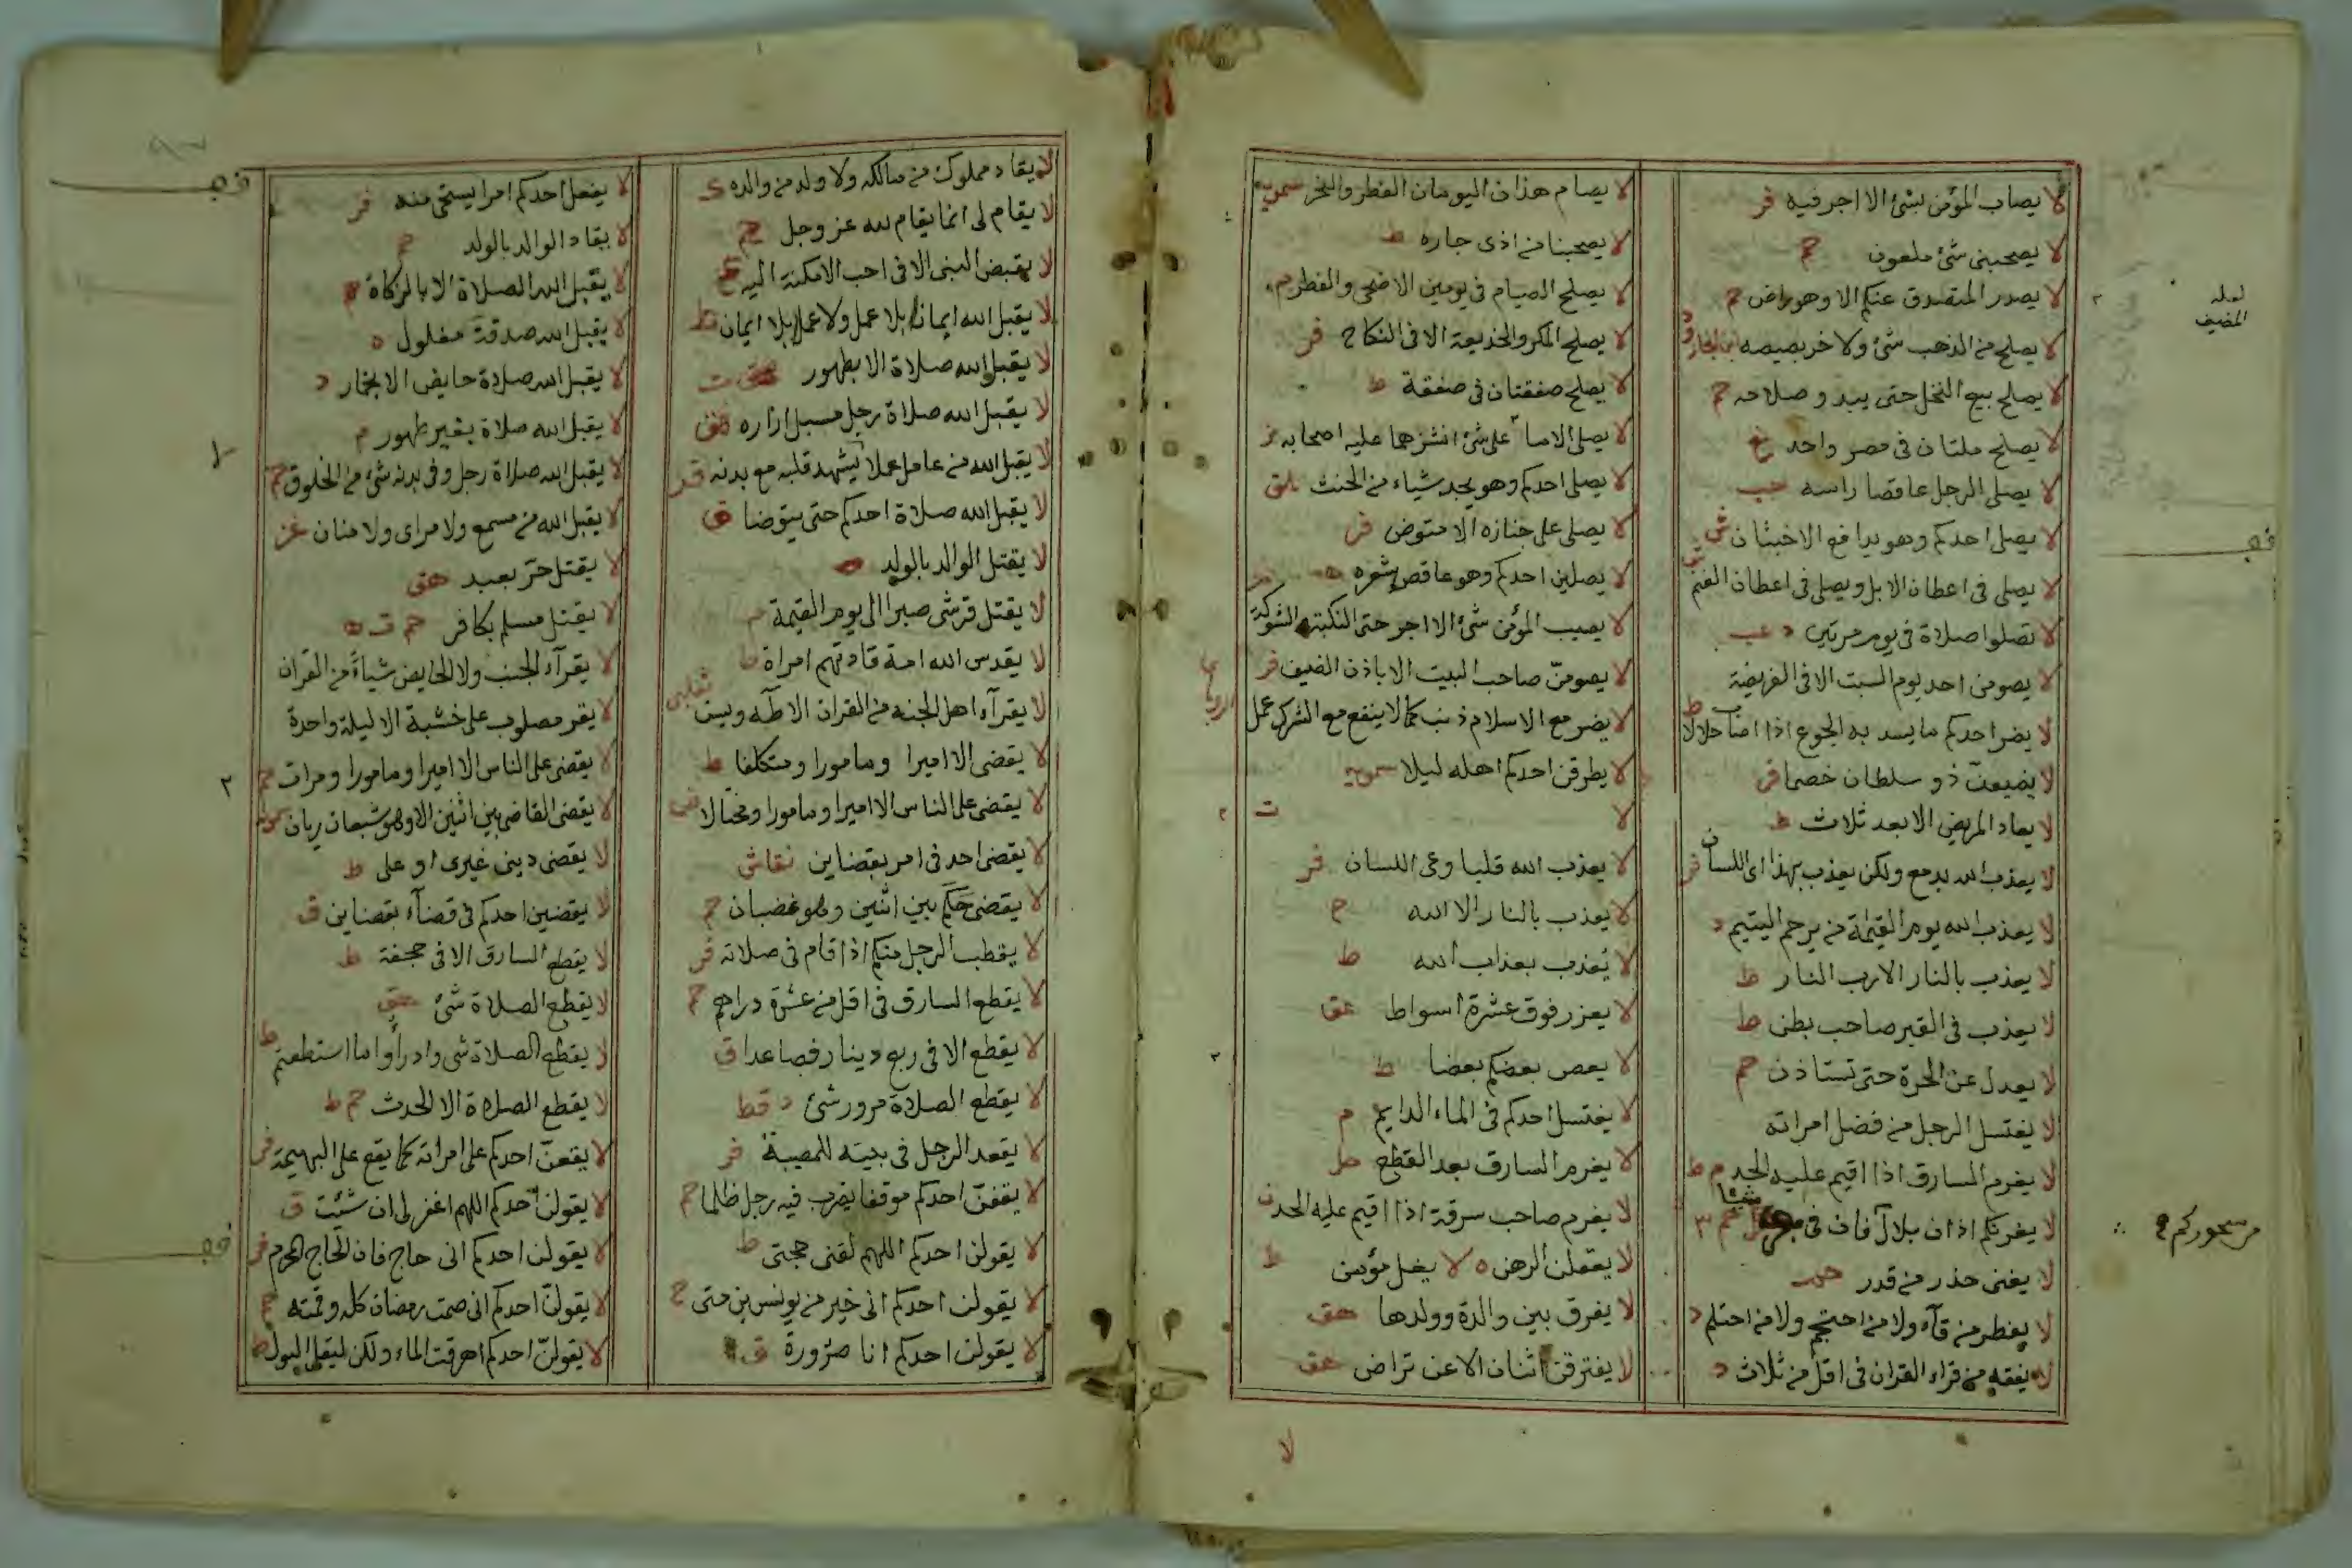 لا يصاب المؤمن بشئ الا اجر فيه فر
لا يصحبنى شئ ملعون حم
لا يصدر المتصدق عنكم الا وهو راض حم
لا يصلح من الذهب شئ ولا خربصيصه
لا يصلح بيع النخل حتى يبدو صلاحه حم
لا يصلح ملتان فى مصر واحد
لا يصلى الرجل عاقصا راسه حب
لا يصلى احدكم وهو يدافع الاخبثان ش
لا يصلى فى اعطان الابل ويصلى فى اعطان الغنم
لا تصلوا صلاة فى يوم مرتين د
لا يصومن احد يوم السبت الا فى الفريضة
لا يضر احدكم ما يسد به الجوع اذا اصاب حلالا ط
لا يضيعن ذو سلطان خصما فر
لا يعاد المريض الا بعد ثلاث ط
لا يعذب الله بدمع ولكن يعذب بهذا اى اللسان فر
لا يعذب الله يوم القيامة من يرحم اليتيم د
لا يعذب بالنار الا رب النار ط
لا يعذب فى القبر صاحب بطن ط
لا يعدل عن الحرة حتى تستاذن حم
لا يغتسل الرجل من فضل امراته
لا يغرم السارق اذا اقيم عليه الحد
لا يغرنكم اذان بلال فان فى
لا يغنى حذر من قدر
لا يفطر من قآء ولا من احتجم ولا من احتلم د
لا يفقه من قراء القران فى اقل من ثلاث د
لعله المضيف
من سحوركم
لا يصام هذان اليومان الفطر والنحر سمويه
لا يصحبنا من اذى جاره ط
لا يصلح الصيام فى يومين الاضحى والفطر م
لا يصلح المكر والخذيعة الا فى النكاح فر
لا يصلح صفقتان فى صفقة ط
لا يصلى الامام على شئ انشز مما عليه اصحابه
لا يصلى احدكم وهو يجد شياء من الخبث
لا يصلى على جنازه الا متوض فر
لا يصلين احدكم وهو عاقص شعره ه
لا يصيب المؤمن شئ الا اجر حتى النكبة الشوكة
لا يصومن صاحب البيت الا باذن الضيف فر
لا يضر مع الاسلام ذنب كما لا ينفع مع الشرك عمل
لا يطرقن احدكم اهله ليلا سمويه
لا ت
لا يعذب الله قلبا وعى اللسان فر
لا يعذب بالنار الا الله
لا يعذب بعذاب الله ط
لا يعزر فوق عشرة اسواط عق
لا يعص بعضكم بعضا ط
لا يغتسل احدكم فى الماء الدايم م
لا يغرم السارق بعد القطع
لا يغرم صاحب سرقة اذا اقيم عليه الحد ن
لا يغفلن الرهن ه لا يغل مؤمن ط
لا يفرق بين والدة وولدها هق
لا يفترقن اثنان الا عن تراض هق
لا
لا يقاد مملوك من مالكه ولا ولد من والده ك
لا يقام لى انما يقام لله عز وجل حم
لا يقبض النبى الا فى احب الامكنة اليه ع
لا يقبل الله ايمانا بلا عمل ولا عملا بلا ايمان
لا يقبل الله صلاة الا بطهور
لا يقبل الله صلاة رجل مسبل ازاره هق
لا يقبل الله من عامل عملا يشهد قلبه مع بدنه
لا يقبل الله صلاة احدكم حتى يتوضا ق
لا يقتل الوالد بالولد
لا يقتل قرشى صبرا الى يوم القيمة م
لا يقدس الله امة قادتهم امراة ط
لا يقرآء اهل الجنه من القران الا طه ويس
لا يقضى الا اميرا ومامورا ومتكلفا ط
لا يقضى على الناس الا اميرا ومامورا ومختالا
لا يقضى احد فى امر بقضاين نقاش
لا يقضى حكم بين اثنين وهو غضبان حم
لا يقطب الرجل منكم اذا قام فى صلاته فر
لا يقطع السارق فى اقل من عشرة دراهم حم
لا يقطع الا فى ربع دينار فصاعدا ق
لا يقطع الصلاة مرور شئ د قط
لا يقعد الرجل فى بيته للمصيبة فر
لا يقفن احدكم موقفا يضرب فيه رجل ظلما حم
لا يقولن احدكم اللهم لقنى حجتى ط
لا يقولن احدكم انى خير من يونس بن متى خ
لا يقولن احدكم انا صرورة ق
لا يفعل احدكم امرا يستحى منه فر
لا يقاد الوالد بالولد حم
لا يقبل الله الصلاة الا بالزكاة
لا يقبل الله صدقة مغلول ه
لا يقبل الله صلاة حايض الا بخمار د
لا يقبل الله صلاة بغير طهور م
لا يقبل الله صلاة رجل وفى بدنه شئ من الخلوق حم
لا يقبل الله من مسمع ولا مراى ولا منان
لا يقتل حر بعبد هق
لا يقتل مسلم بكافر حم ت ه
لا يقرآء الجنب ولا الحايض شياء من القران
لا يقر مصلوب على خشبة الا ليلة واحدة
لا يقضى على الناس الا اميرا ومامورا ومرات حم
لا يقضى القاضى بين اثنين الا وهو شبعان ريان
لا يقضى دينى غيرى او على ط
لا يقضين احدكم فى قضآء بقضاين ق
لا يقطع السارق الا فى حجفة ط
لا يقطع الصلاة شئ هق
لا يقطع الصلاة شى وادراوا ما استطعتم ط
لا يقطع الصلاة الا الحدث حم ط
لا يقعن احدكم على امراته كما يقع على البهيمة فر
لا يقولن احدكم اللهم اغفر لى ان شئت ق
لا يقولن احدكم انى حاج فان الحاج المحرم فر
لا يقولن احدكم انى صمت رمضان كله وقمته حم
لا يقولن احدكم اهرقت الماء ولكن ليقل البول ط